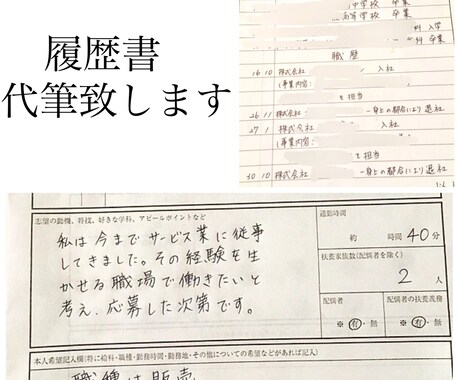 履歴書
代筆致します
中学校 卒業
高等学校 卒業
科 入学
科 卒業
職歴
16 10 株式会社 入社
(事業内容:
を担当
26 11 株式会社 一身上の都合により退社
27 1 株式会社 入社
(事業内容:
を担当
30 10 株式会社 一身上の都合により退社
志望の動機、特技、好きな学科、アピールポイントなど
私は今までサービス業に従事
してきました。その経験を生
かせる職場で働きたいと
考え、応募した次第です。
通勤時間
約 時間 40 分
扶養家族数(配偶者を除く)
2 人
配偶者
※ 有・無
配偶者の扶養義務
※ 有・無
本人希望記入欄(特に給料・職種・勤務時間・勤務地・その他についての希望などがあれば記入)
職種は販売